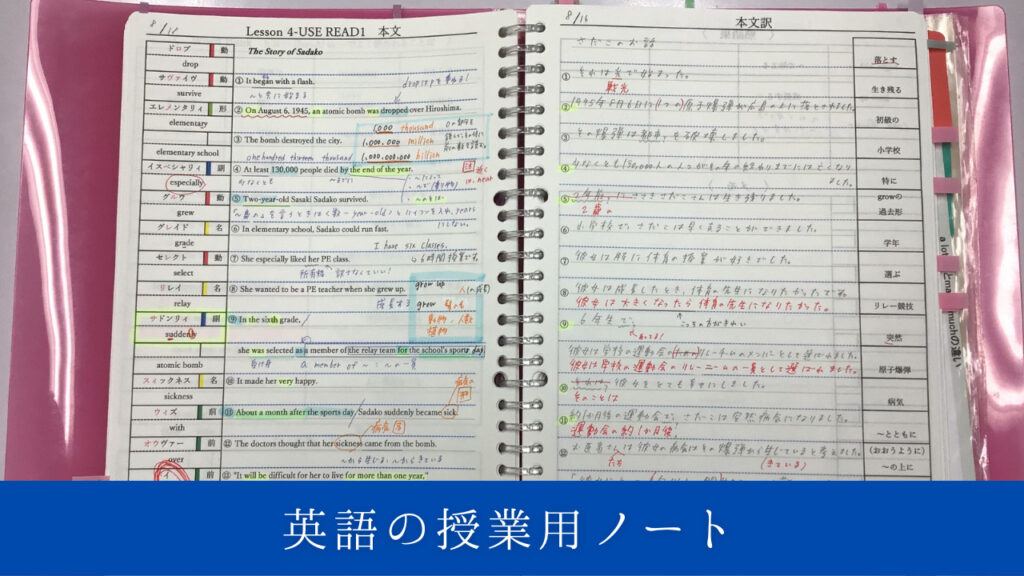 8/15
Lesson 4-USE READ1 本文
ドロプ 動
drop
サヴァイヴ 動
survive
エレメンタリィ 形
elementary
elementary school
イスペシャリィ 副
especially
グルウ 動
grew
グレイド 名
grade
セレクト 動
select
リレイ 名
relay
サドンリィ 副
suddenly
atomic bomb
スィックネス 名
sickness
ウィズ 前
with
オウヴァー 前
over
前
The Story of Sadako
① It began with a flash.
② On August 6, 1945, an atomic bomb was dropped over Hiroshima.
1,000 thousand
1,000,000 million
1,000,000,000 billion
③ The bomb destroyed the city.
one hundred thirteen thousand
④ At least 130,000 people died by the end of the year.
少なくとも
⑤ Two-year-old Sasaki Sadako survived.
⑥ In elementary school, Sadako could run fast.
I have six classes.
⑦ She especially liked her PE class.
→6時間授業です。
⑧ She wanted to be a PE teacher when she grew up.
grow up 人の成長
成長する grow
動物・人数
植物
⑨ In the sixth grade,
she was selected as a member of the relay team for the school's sports day.
a member of ~ : ~の一員
⑩ It made her very happy.
⑪ About a month after the sports day, Sadako suddenly became sick.
病気
⑫ The doctors thought that her sickness came from the bomb.
⑬ "It will be difficult for her to live for more than one year,"
8/16
本文訳
さだこのお話
① それは光で始まった。
閃光
② 1945年8月6日に(1つの)原子爆弾が広島の上に落とされました。
③ その爆弾は都市を破壊しました。
④ 少なくとも130,000人の人々がその年の終わりまでに亡くなり
ました。
⑤ 2年前にささきさだこさんは生き残りました。
2歳の
⑥ 小学校で、さだこは早く走ることができました。
⑦ 彼女は特に体育の授業が好きでした。
⑧ 彼女は成長したとき、体育の先生になりたかったです。
彼女は大きくなったら体育の先生になりたかった。
⑨ 6年生で、
彼女は学校の運動会のリレーチームのメンバーとして選ばれました。
彼女は学校の運動会のリレーチームの一員として選ばれました。
⑩ それは、彼女をとても幸せにしました。
そのことは
⑪ 約1か月後の運動会で、さだこは突然病気になりました。
運動会の約1か月後!
⑫ お医者さんは彼女の病気はその爆弾から生じていると考えました。
たち
(きている)
落とす
生き残る
初級の
小学校
特に
growの
過去形
学年
選ぶ
リレー競技
突然
原子爆弾
病気
~とともに
(おおうように)
~の上に
a lot
muchの違い
英語の授業用ノート